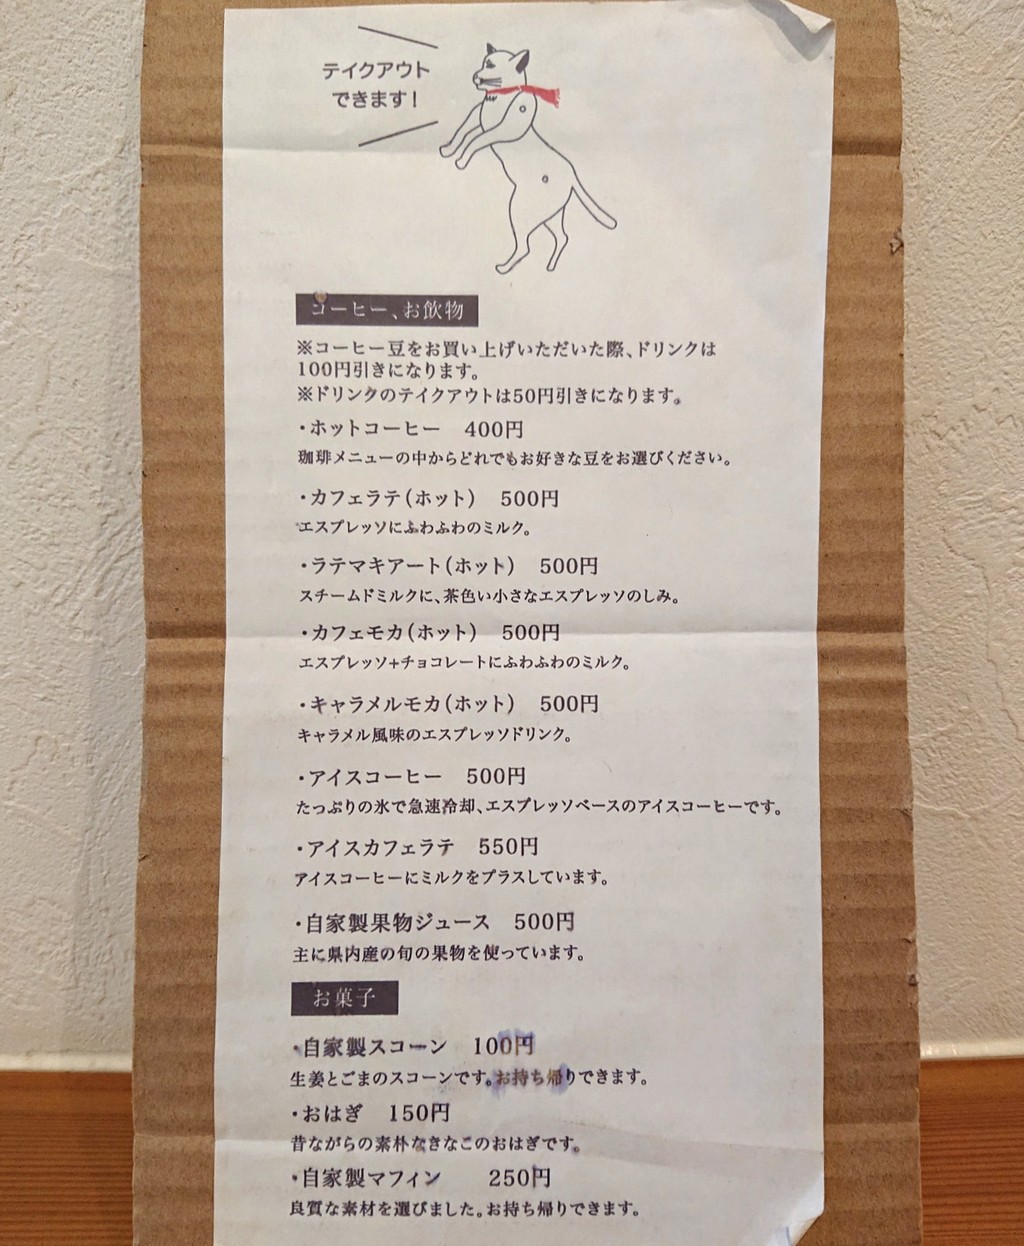 テイクアウト
できます！
コーヒー、お飲物
※コーヒー豆をお買い上げいただいた際、ドリンクは
100円引きになります。
※ドリンクのテイクアウトは50円引きになります。
・ホットコーヒー　400円
珈琲メニューの中からどれでもお好きな豆をお選びください。
・カフェラテ（ホット）　500円
エスプレッソにふわふわのミルク。
・ラテマキアート（ホット）　500円
スチームドミルクに、茶色い小さなエスプレッソのしみ。
・カフェモカ（ホット）　500円
エスプレッソ+チョコレートにふわふわのミルク。
・キャラメルモカ（ホット）　500円
キャラメル風味のエスプレッソドリンク。
・アイスコーヒー　500円
たっぷりの氷で急速冷却、エスプレッソベースのアイスコーヒーです。
・アイスカフェラテ　550円
アイスコーヒーにミルクをプラスしています。
・自家製果物ジュース　500円
主に県内産の旬の果物を使っています。
お菓子
・自家製スコーン　100円
生姜とごまのスコーンです。お持ち帰りできます。
・おはぎ　150円
昔ながらの素朴なきなこのおはぎです。
・自家製マフィン　　250円
良質な素材を選びました。お持ち帰りできます。